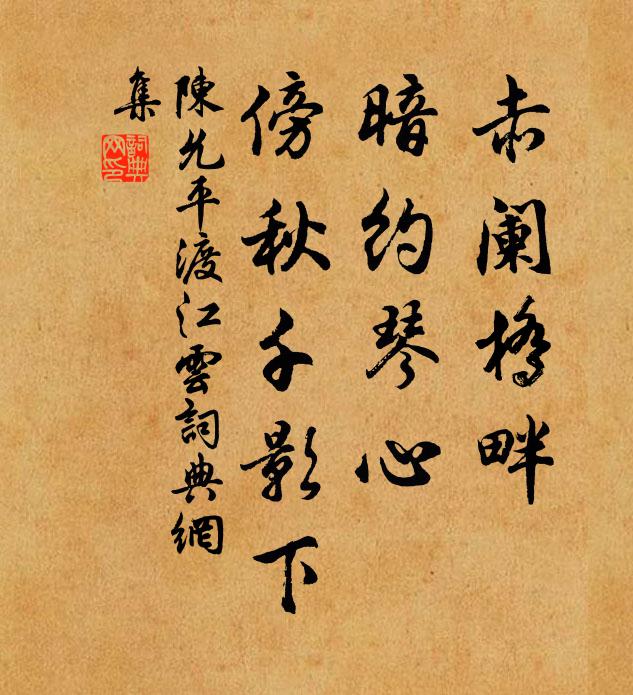 赤阑橋畔
暗約琴心
傍秋千影下
陳允平渡江雲詞典網
集
詞典网印